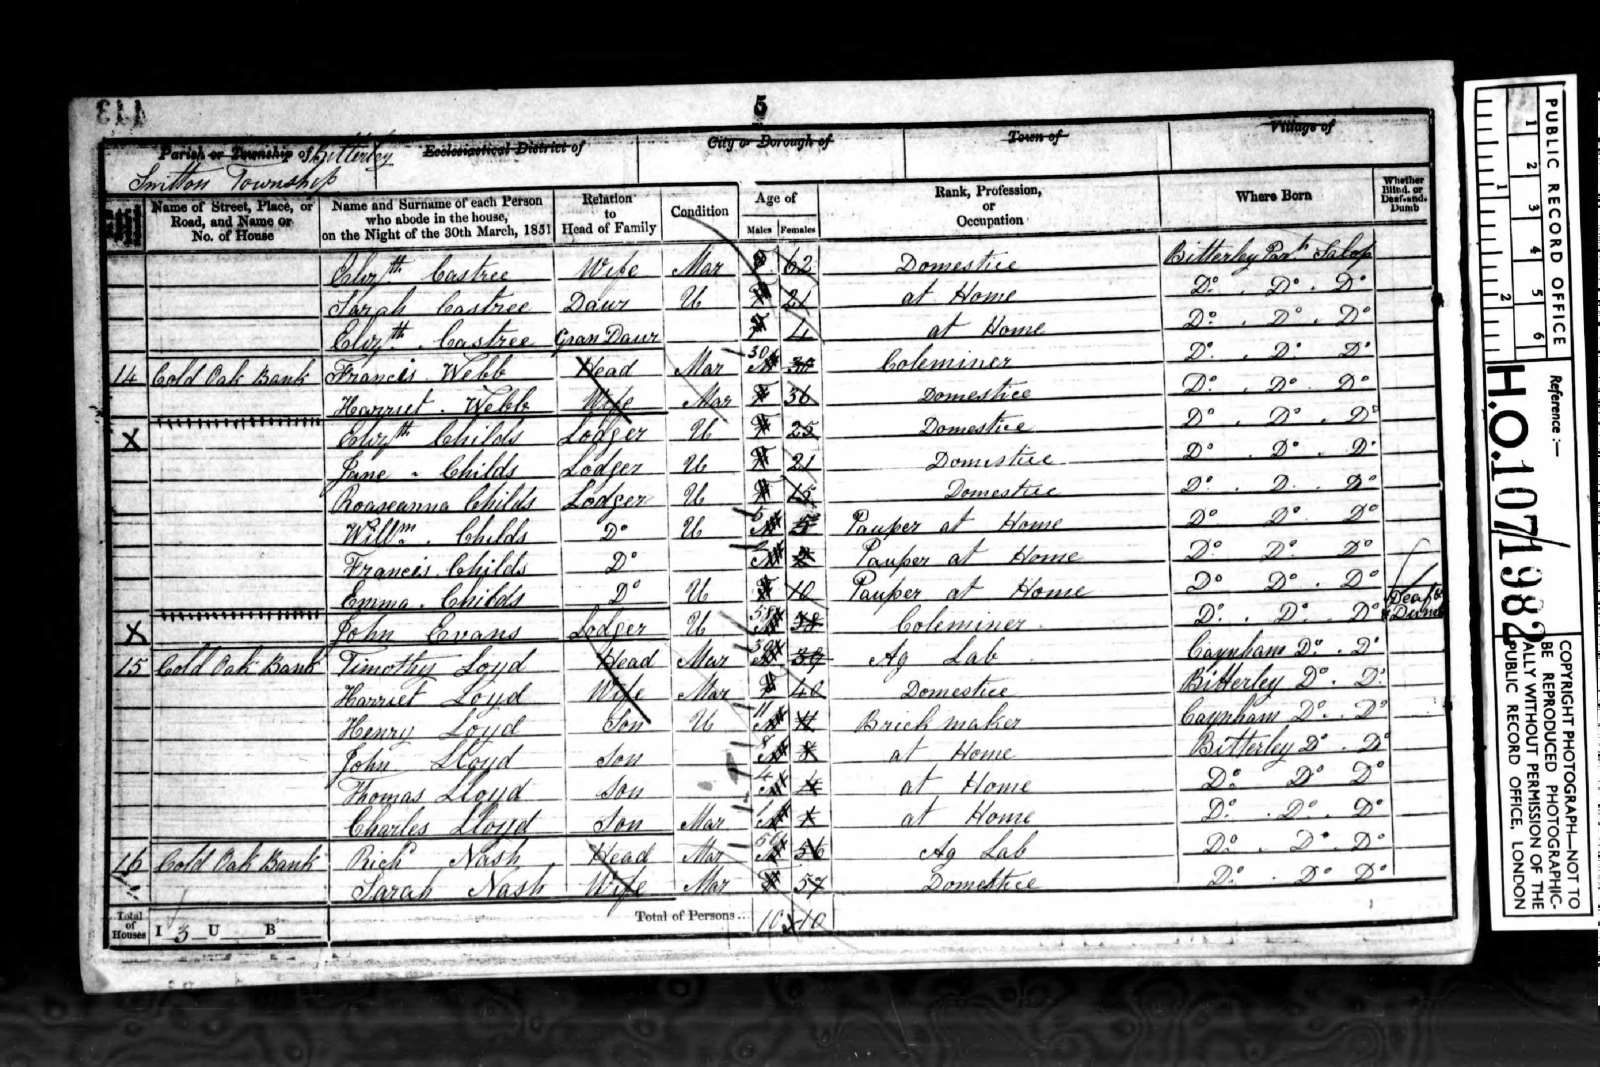 113
5
Parish or Township of Bitterley
Ecclesiastical District of
City or Borough of
Town of
Village of
Snitton Township
Name of Street, Place, or Road, and Name or No. of House
Name and Surname of each Person who abode in the house, on the Night of the 30th March, 1851
Relation to Head of Family
Condition
Age of
Males Females
Rank, Profession, or Occupation
Where Born
Whether Blind, or Deaf-and-Dumb
Elizth Castree Wife Mar F 62 Domestice Bitterley Parh Salop
Sarah Castree Daur U F 21 at Home Do. Do. Do
Elizth. Castree Gran Daur F 4 at Home Do. Do. Do
14 Cold Oak Bank Francis Webb Head Mar 30 M 30 Coleminer Do. Do. Do
Harriet. Webb Wife Mar F 36 Domestice Do. Do. Do
X Elizth Childs Lodger U F 25 Domestice Do. Do. Do
Jane. Childs Lodger U F 21 Domestice Do. Do. Do
Roaseanna Childs Lodger U F 15 Domestice Do. D. Do
Willm. Childs Do U 5 M 5 Pauper at Home Do Do. Do
Francis. Childs Do M Pauper at Home Do Do. Do
Emma. Childs Do U F 10 Pauper at Home Do Do. Do
X John Evans Lodger U 38 M 38 Coleminer Do. Do. Do Deaf & Dumb
15 Cold Oak Bank Timothy Loyd Head Mar 39 M 39 Ag Lab Caynham Do. Do
Harriet Loyd Wife Mar F 40 Domestice Bitterley Do. Do
Henry Loyd Son U 11 M 11 Brick maker Caynham Do. Do
John Lloyd Son 8 M 8 at Home Bitterley Do. Do
Thomas Lloyd Son 4 M 4 at Home Do. Do Do
Charles Lloyd Son Mar 1 M 1 at Home Do. Do. Do
16 Cold Oak Bank Richd Nash Head Mar 56 M 56 Ag Lab Do. Do. Do
Sarah Nash Wife Mar F 57 Domestice Do. Do Do
Total of Houses I 3 U B Total of Persons... 10 10
PUBLIC RECORD OFFICE
1 2 3 4 5 6
1 2
Reference:-
H.O.107/1982
COPYRIGHT PHOTOGRAPH—NOT TO BE REPRODUCED PHOTOGRAPHICALLY WITHOUT PERMISSION OF THE PUBLIC RECORD OFFICE, LONDON